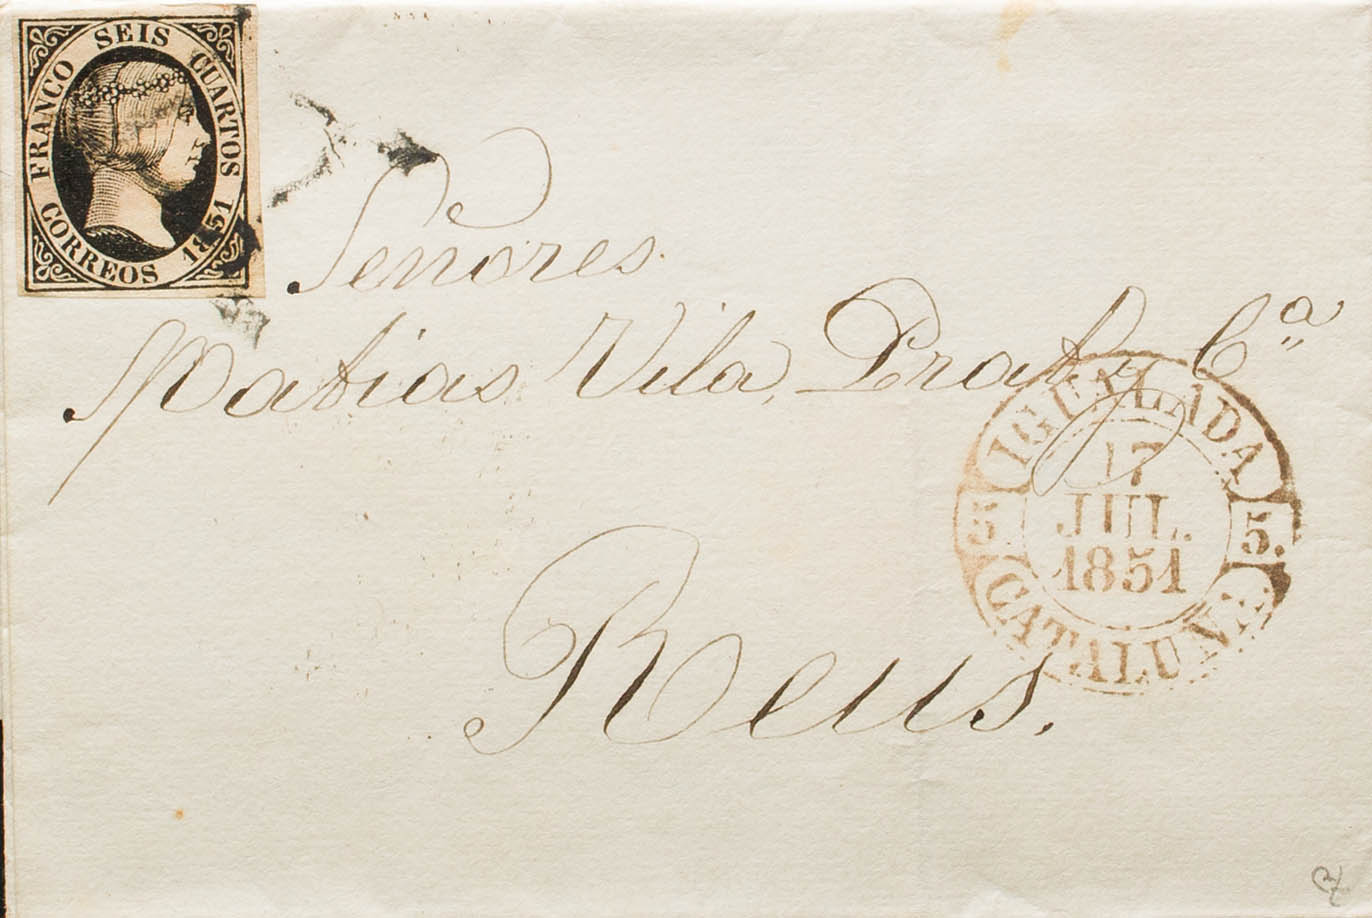 FRANCO SEIS CUARTOS
CORREOS 1851
Señores
Matias Vila, Prat y Cª
IGUALADA
17
JUL.
1851
5 5.
CATALUÑA
Reus.